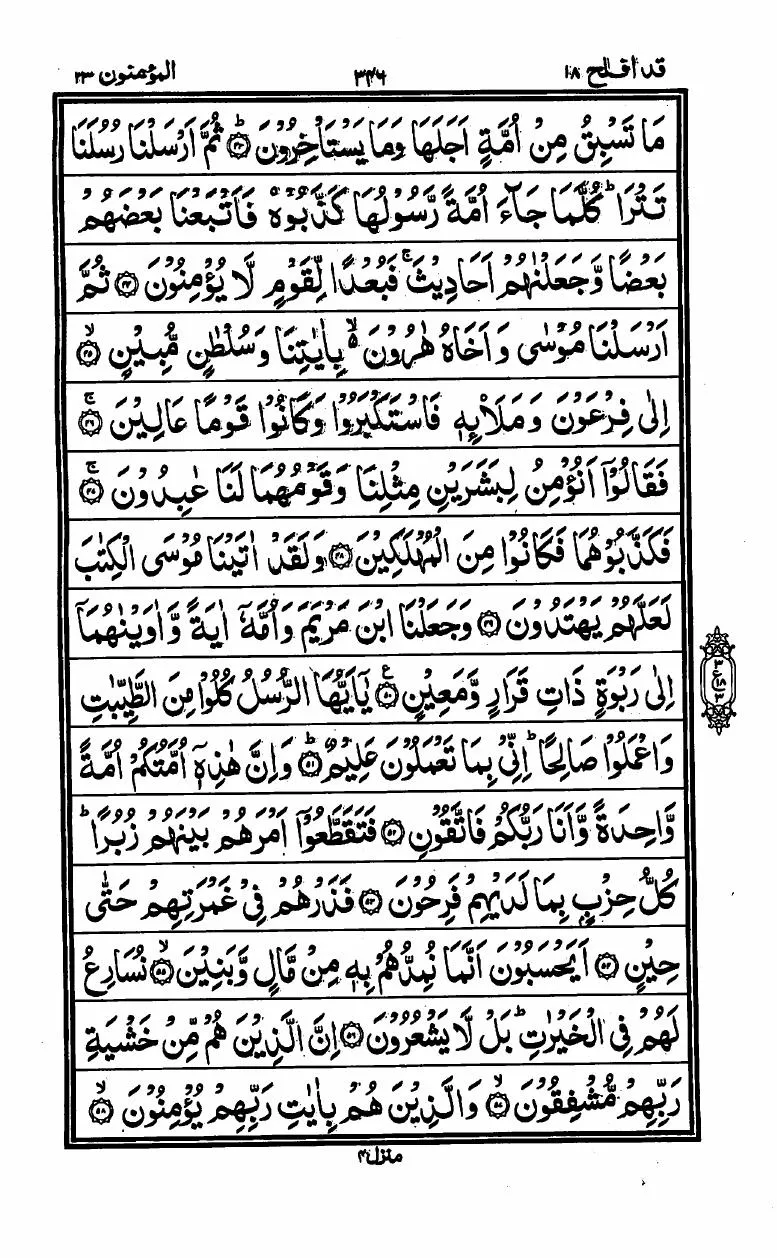 قد افلح ١٨
٣٤٦
المؤمنون ٢٣
مَا تَسْبِقُ مِنْ اُمَّةٍ اَجَلَهَا وَمَا يَسْتَاْخِرُوْنَ ؕ‏﴿۴۳﴾ ثُمَّ اَرْسَلْنَا رُسُلَنَا
تَتْرَا ؕ كُلَّمَا جَآءَ اُمَّةً رَّسُوْلُهَا كَذَّبُوْهُ فَاَتْبَعْنَا بَعْضَهُمْ
بَعْضًا وَّجَعَلْنٰهُمْ اَحَادِيْثَ ۚ فَبُعْدًا لِّقَوْمٍ لَّا يُؤْمِنُوْنَ ﴿۴۴﴾ ثُمَّ
اَرْسَلْنَا مُوْسٰى وَاَخَاهُ هٰرُوْنَ ۙ۬ بِاٰيٰتِنَا وَسُلْطٰنٍ مُّبِيْنٍ ۙ﴿۴۵﴾
اِلٰى فِرْعَوْنَ وَمَلَا۟ئِهٖ فَاسْتَكْبَرُوْا وَكَانُوْا قَوْمًا عَالِيْنَ ۚ﴿۴۶﴾
فَقَالُوْۤا اَنُؤْمِنُ لِبَشَرَيْنِ مِثْلِنَا وَقَوْمُهُمَا لَنَا عٰبِدُوْنَ ۚ﴿۴۷﴾
فَكَذَّبُوْهُمَا فَكَانُوْا مِنَ الْمُهْلَكِيْنَ ﴿۴۸﴾ وَلَقَدْ اٰتَيْنَا مُوْسَى الْكِتٰبَ
لَعَلَّهُمْ يَهْتَدُوْنَ ﴿۴۹﴾ وَجَعَلْنَا ابْنَ مَرْيَمَ وَاُمَّهٗۤ اٰيَةً وَّاٰوَيْنٰهُمَاۤ
اِلٰى رَبْوَةٍ ذَاتِ قَرَارٍ وَّمَعِيْنٍ ﴿۵۰﴾ ع يٰۤاَيُّهَا الرُّسُلُ كُلُوْا مِنَ الطَّيِّبٰتِ
وَاعْمَلُوْا صَالِحًا ؕ اِنِّىْ بِمَا تَعْمَلُوْنَ عَلِيْمٌ ؕ﴿۵۱﴾ وَاِنَّ هٰذِهٖۤ اُمَّتُكُمْ اُمَّةً
وَّاحِدَةً وَّاَنَا رَبُّكُمْ فَاتَّقُوْنِ ﴿۵۲﴾ فَتَقَطَّعُوْۤا اَمْرَهُمْ بَيْنَهُمْ زُبُرًا ؕ
كُلُّ حِزْبٍۭ بِمَا لَدَيْهِمْ فَرِحُوْنَ ﴿۵۳﴾ فَذَرْهُمْ فِىْ غَمْرَتِهِمْ حَتّٰى
حِيْنٍ ﴿۵۴﴾ اَيَحْسَبُوْنَ اَنَّمَا نُمِدُّهُمْ بِهٖ مِنْ مَّالٍ وَّبَنِيْنَ ۙ﴿۵۵﴾ نُسَارِعُ
لَهُمْ فِى الْخَيْرٰتِ ؕ بَلْ لَّا يَشْعُرُوْنَ ﴿۵۶﴾ اِنَّ الَّذِيْنَ هُمْ مِّنْ خَشْيَةِ
رَبِّهِمْ مُّشْفِقُوْنَ ۙ﴿۵۷﴾ وَالَّذِيْنَ هُمْ بِاٰيٰتِ رَبِّهِمْ يُؤْمِنُوْنَ ۙ﴿۵۸﴾
٣
١٨
ع
٣
منزل ٤